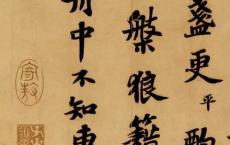 盞更平酌
槃狼籍
舟中不知東